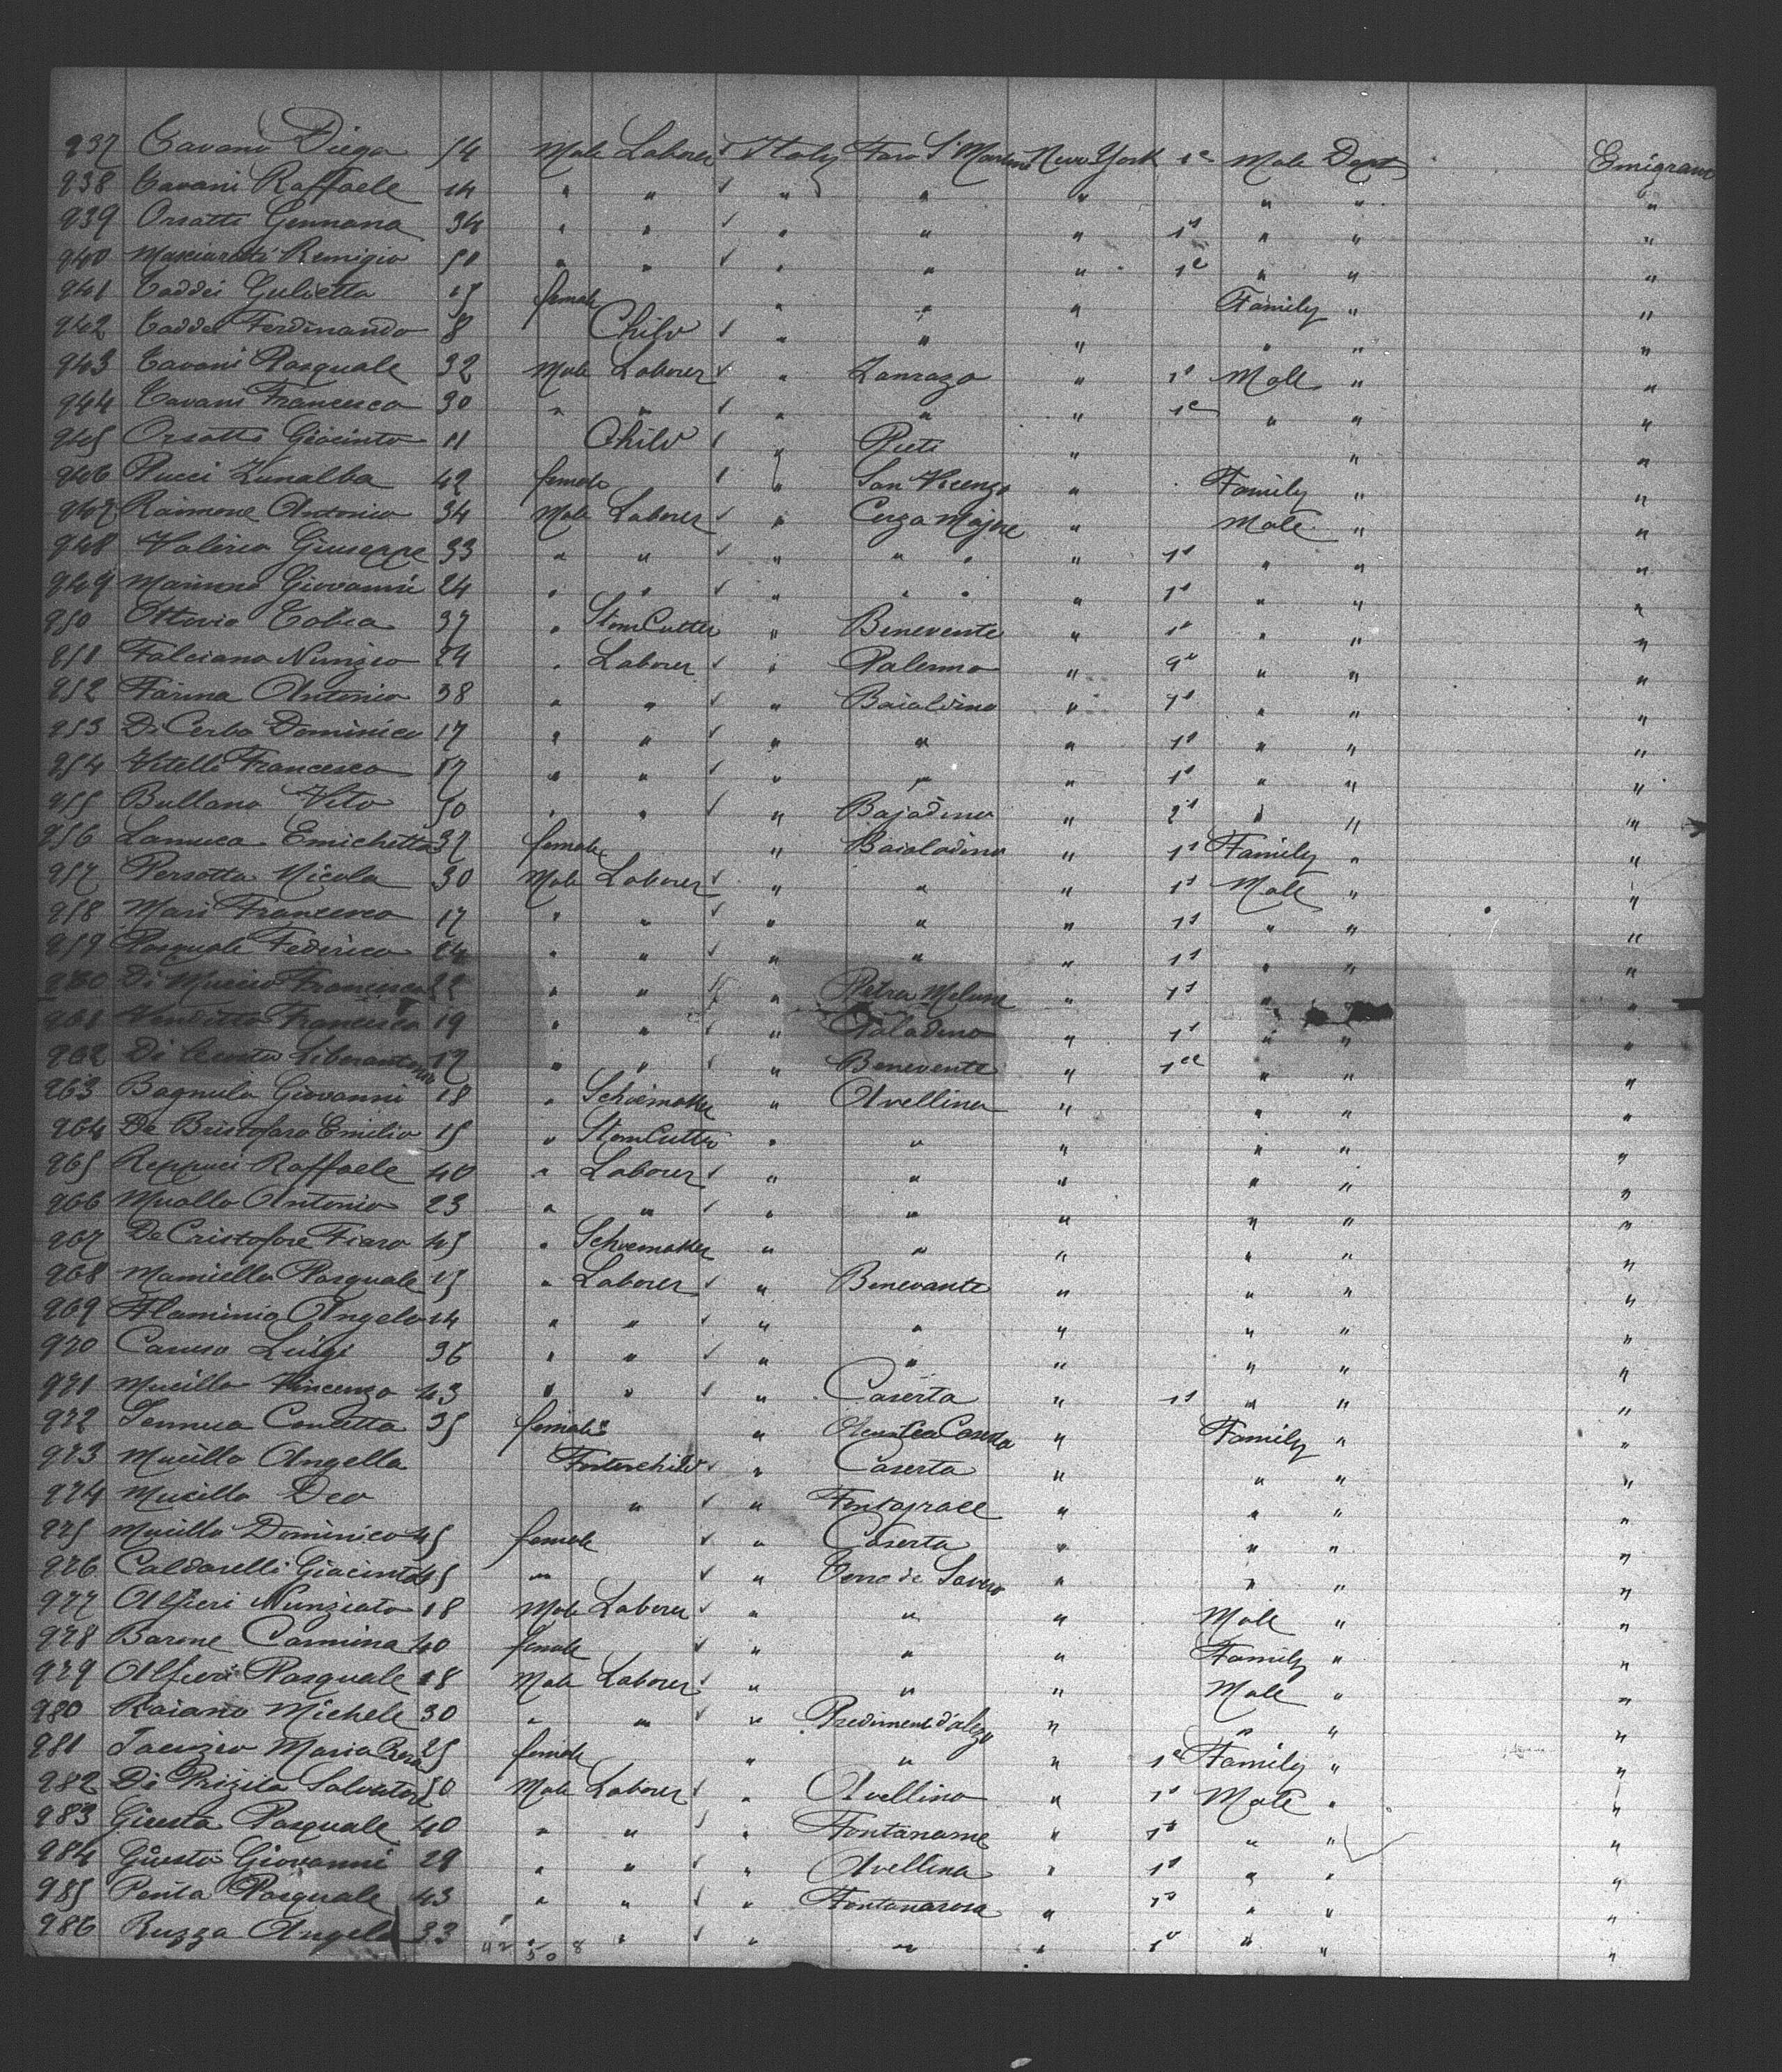 937 Cavano Diega 54 Male Laborer Italy Faro S Martino New York 1c Male Dept Emigrant
938 Cavani Raffaele 14 " " " " " " " "
939 Orsatti Gennara 34 " " " " " 1s " " "
940 Masciarelli Remigio 50 " " " " " 1c " " "
941 Taddei Gulietta 25 female " " " Family " "
942 Taddei Ferdinando 8 Child " " " " " "
943 Cavani Pasquale 32 Male Laborer " Lanrazo " 1s Male " "
944 Cavani Francesco 30 " " " " " 1c " " "
945 Orsatti Giacinto 11 Child " Rieti " " "
946 Pucci Zunalba 42 female " San Vicenzo " Family " "
947 Raimone Antonio 34 Male Laborer " Cerza Majore " Male " "
948 Valerio Giuseppe 33 " " " " " " 1s " " "
949 Giovanni 24 " " " " " " 1s " " "
950 Ottavio Tobia 37 " StonCutter " Benevente " 1s " " "
951 Falciano Nunzio 24 " Laborer " Palermo " " " "
952 Farina Antonio 38 " " " Baialdino " 1s " " "
953 Di Cerbo Dominico 17 " " " " " 1s " " "
954 Vitelli Francesco 17 " " " " " 1s " " "
955 Bullano Vito 50 " " " Bajadino " 2s " " "
956 Lamuca Emichetta 37 female " Baialadino " 1s Family " "
957 Persotta Nicola 30 Male Laborer " " " 1s Male " "
958 Mari Francesco 17 " " " " " 1s " " "
959 Pasquale Federico 24 " " " " " 1s " " "
960 Di Muccio Francesco 22 " " " Petra Melune " 1s "
961 Venditto Francesco 19 " " " Paladino " 1s " " "
962 Di Liberantonio 17 " " " Benevente " " " "
963 Bagnulo Giovanni 18 " Schoemaker " Avellina " " " "
964 De Bristofaro Emilio 15 " StonCutter " " " " " "
965 Reppucci Raffaele 40 " Laborer " " " " " "
966 Muollo Antonio 23 " " " " " " " "
967 De Cristofore Fiaro 45 " Schoemaker " " " " " "
968 Mamiello Pasquale 25 " Laborer " Benevante " " " "
969 Flaminio Angelo 14 " " " " " " " "
970 Caruso Luigi 36 " " " " " " " "
971 Mucillo Vincenzo 43 " " " Caserta " 1s " " "
972 Concetta 35 female " Caserta " Family " "
973 Mucillo Angella Fosterchild " Caserta " " " "
974 Mucillo Deo " " " " " "
975 Mucillo Dominico 45 female " Caserta " " " "
976 Caldarelli Giacinto 45 " " " " " "
977 Alfieri Nunziato 18 Male Laborer " " " Male " "
978 Barone Carmina 40 female " " " Family " "
979 Alfieri Pasquale 18 Male Laborer " " " Male " "
980 Raiano Michele 30 " " " Prediment d'alezo " " " "
981 Maria Rosa 25 female " " " 1c Family " "
982 Di Prizita Salvatore 50 Male Laborer " Avellino " 1s Male " "
983 Giusta Pasquale 40 " " " Fontaname " 1s " " "
984 Giusto Giovanni 29 " " " Avellina " 1s " " "
985 Penta Pasquale 43 " " " Fontanarosa " 1s " " "
986 Ruzza Angelo 33 " " " " " 1s " " "
42 50 8